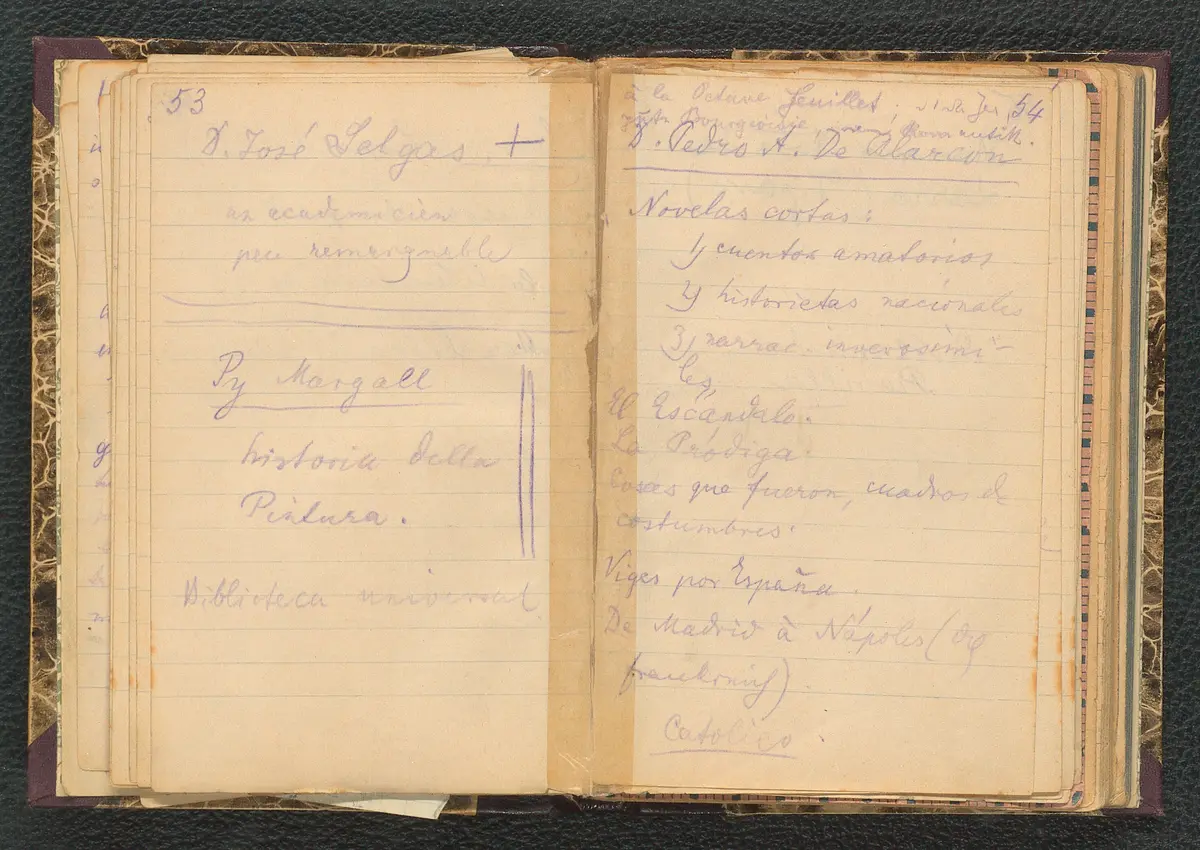 53
D. José Selgas +
un academicien
peu remarquable
Py Margall
historia della
Pintura.
Biblioteca universal
54
à la Octave Feuillet.
D. Pedro A. De Alarcon
Novelas cortas:
1) cuentos amatorios
2) historietas nacionales
3) narrac. inverosimi-
les
El Escándalo.
La Pródiga.
Cosas que fueron, cuadros de
costumbres.
Viges por España.
De Madrid à Nápoles (
Católico.